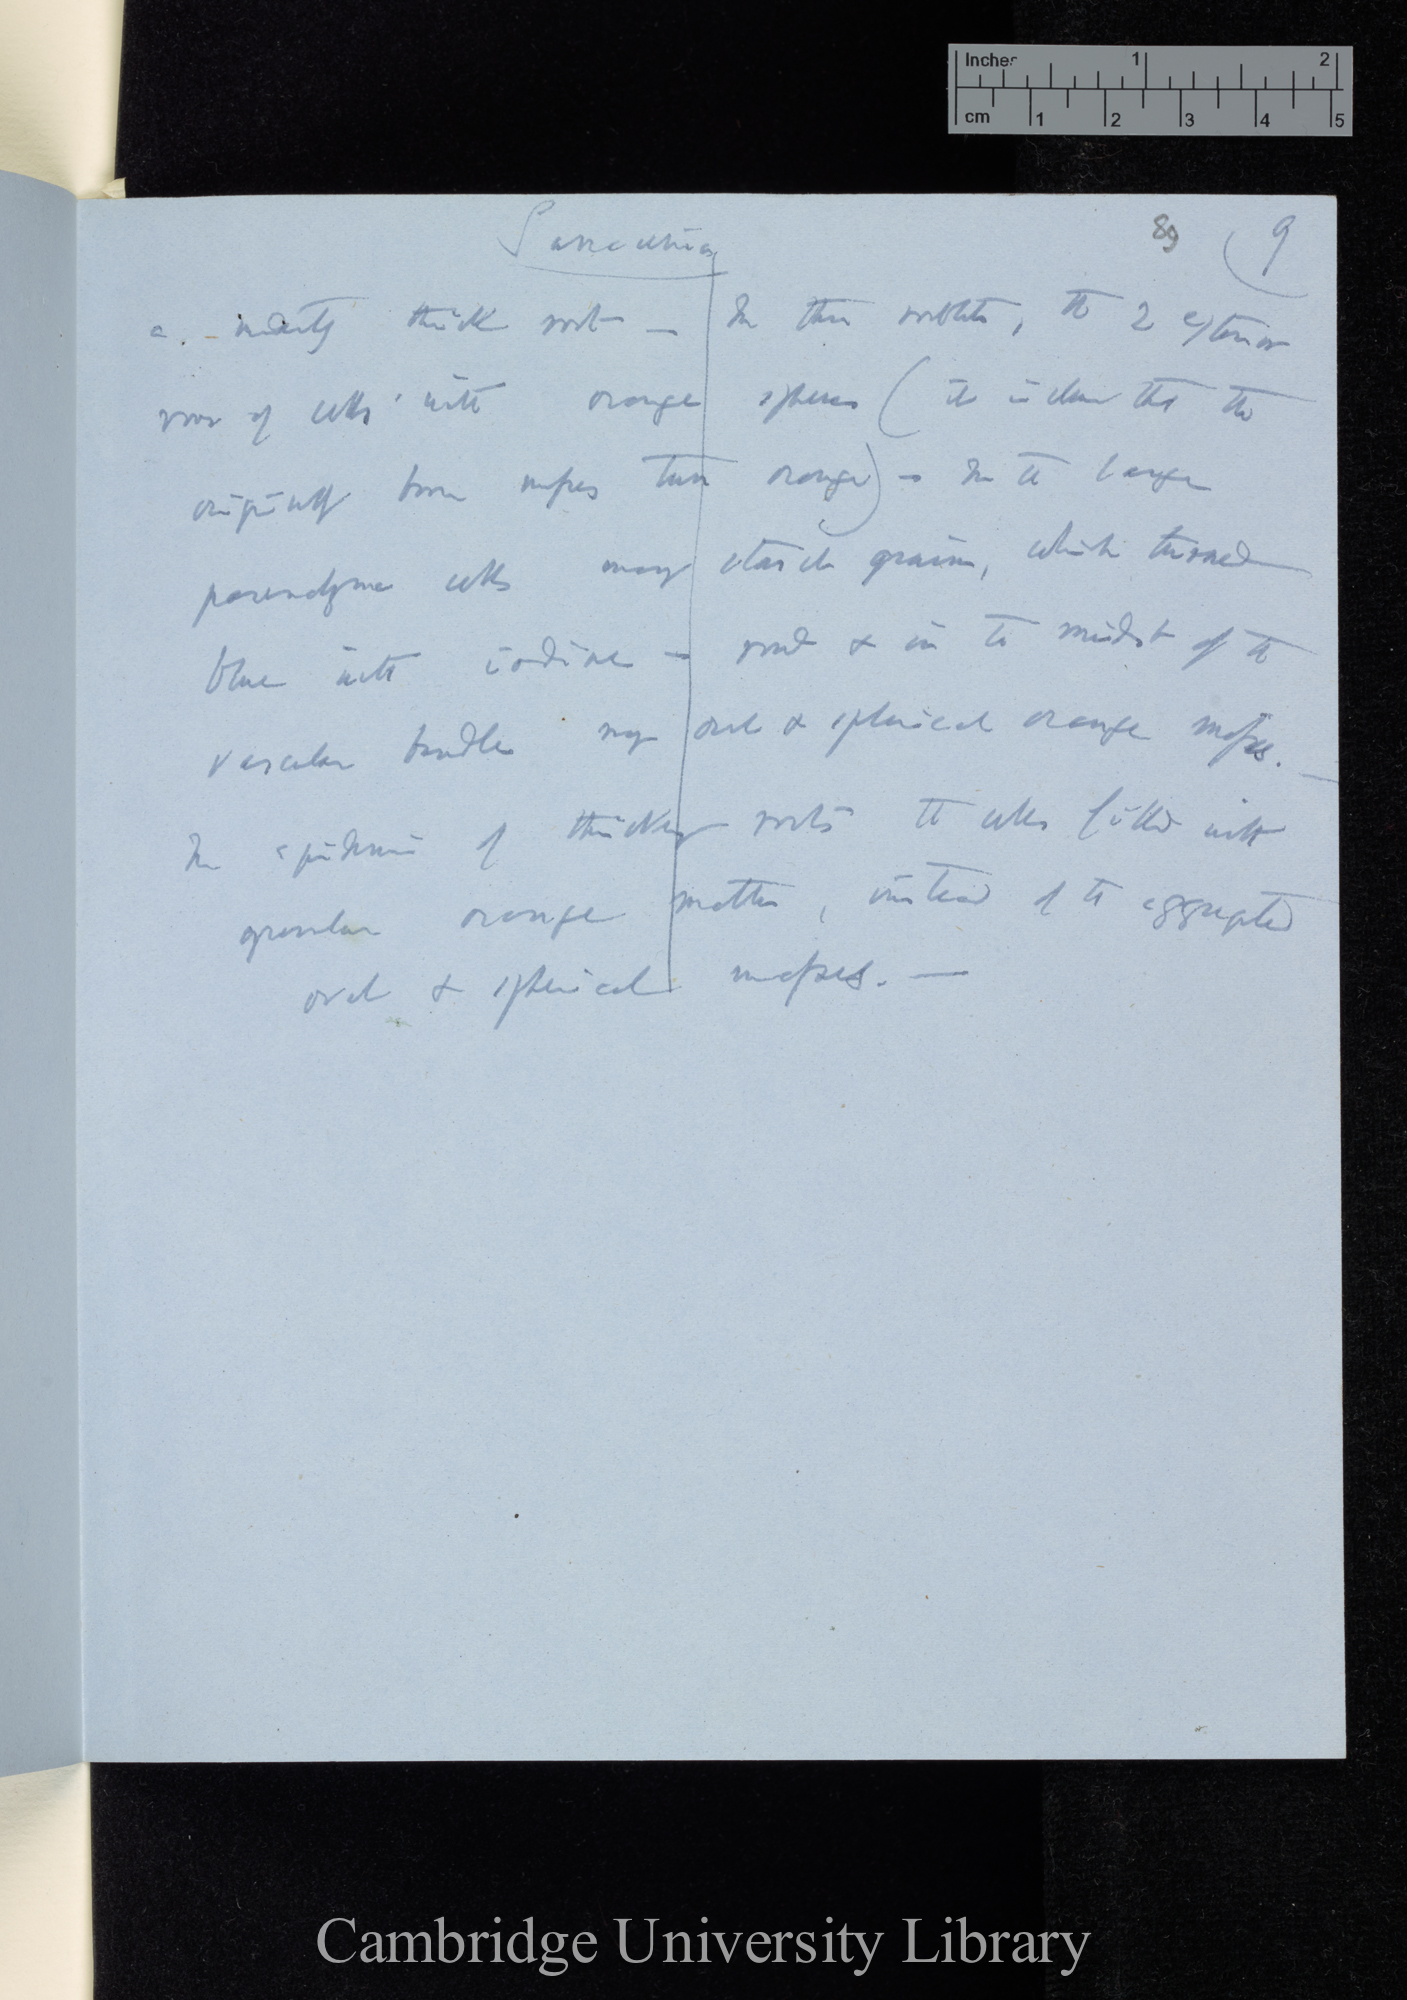 Inches 1 2
cm 1 2 3 4 5
Sarracenia
89 (9
a. moderately thick root — In thin rootlets, the 2 exterior
rows of cells with orange spheres (it is clear that the
originally brown masses turn orange) — In the large
parenchyma cells many starch grains, which turned
blue with iodine — round & in the midst of the
vascular bundles many oval & spherical orange masses.
In epidermis of thicker roots the cells filled with
granular orange matter, instead of the aggregated
oval & spherical masses. —
Cambridge University Library